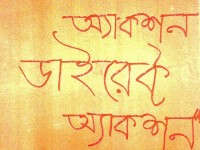 অ্যাকশন
ডাইরেক্ট
অ্যাকশন"